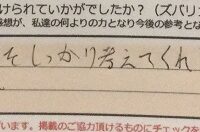 けられていかがでしたか？（ズバリ
感想が、私達の何よりの力となり今後の参考とな
そしっかり考えてくれ
います。
掲載のご協力頂けるものにチェックを